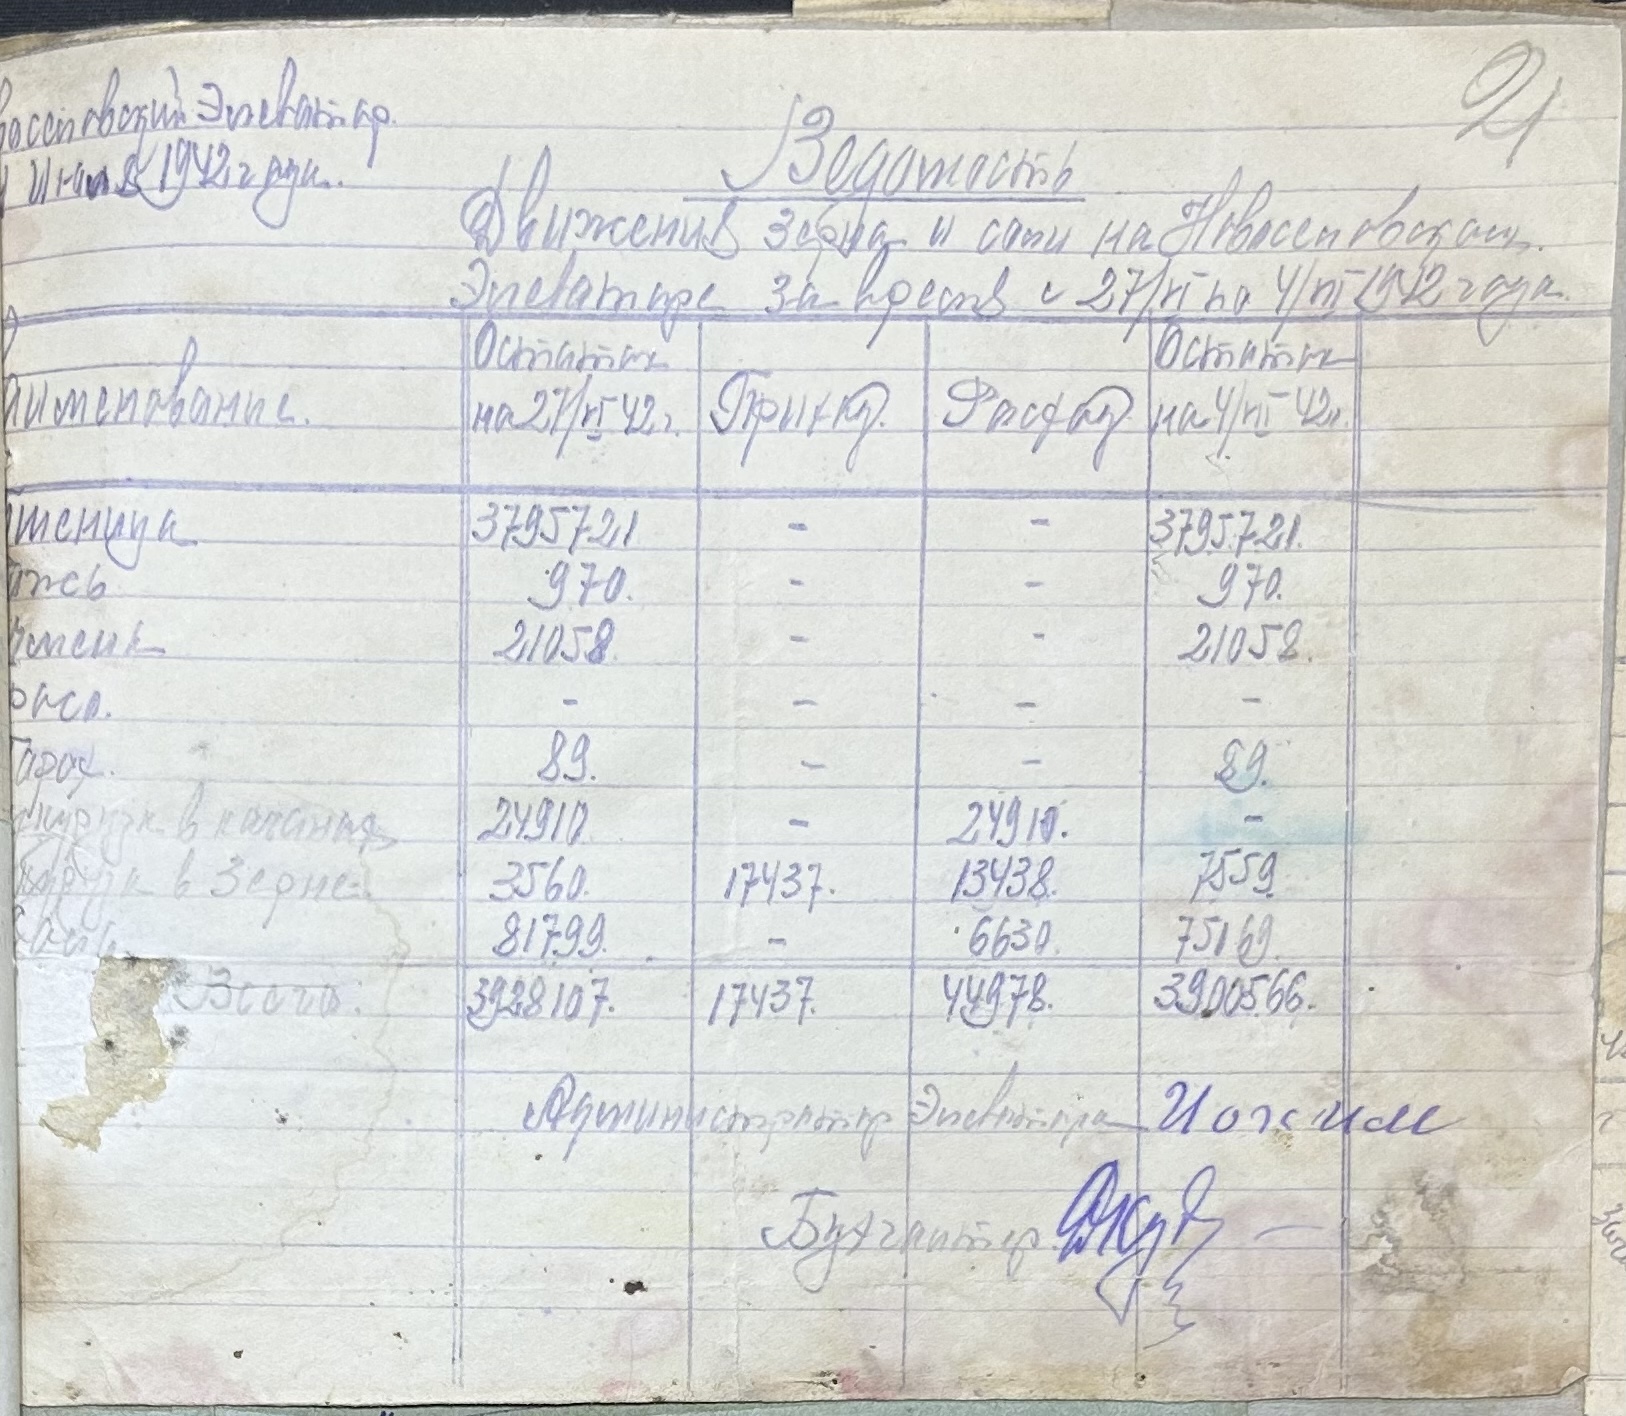 21
восеповский Элеватор.
Июля 1942 года.
Ведомость
Движения зерна и сои на Новосеповском
Элеваторе за время с 27/VI по 4/VII 1942 года.
аименование. Остаток на 27/VI 42 г. Приход. Расход Остаток на 4/VII 42 г.
шеница 3795721 - - 3795721.
ожь 970. - - 970.
чмень 21058. - - 21058.
росо. - - - -
Горох. 89. - - 89.
Кукуруза в качанах 24910 - 24910. -
Кукуруза в Зерне. 3560. 17437. 13438. 7559.
81799. - 6630. 75169.
Всего. 3928107. 17437. 44978. 3900566.
Администратор Элеватора
Бухгалтер